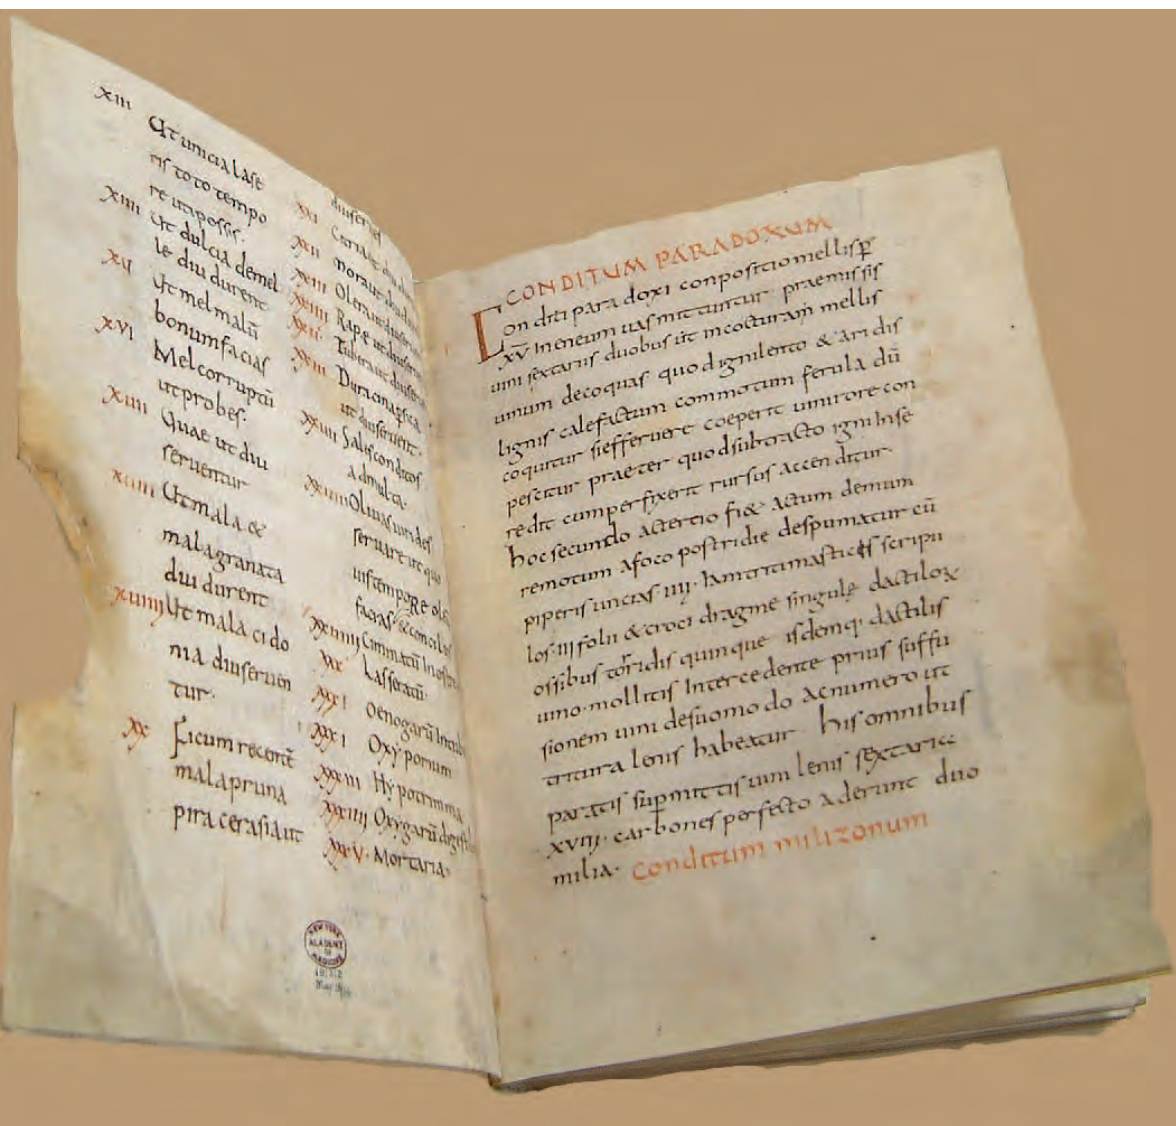 XIII Ut uncia lase
ris toto tempo
re utipossis.
XIIII Ut dulcia demel
le diu durent
XV Ut mel malū
bonum facias
XVI Mel corruptū
ut probes.
XVII Quae ut diu
serventur
XVIII Ut mala &
mala granata
diu durent
XVIIII Ut mala cido
nia diu serven
tur.
XX Ficum recentē
mala pruna
pira cerasia ut
diu servēs
XXI Citria ut diu
XXII Mora ut diu
XXIII Olera ut diu
XXIIII Rape ut diu
XXV Tubera ut diu
XXVI Duracina psica
ut diu servent.
XXVII Salis conditos
ad multa.
XXVIII Olivas virides
servare ut quo
vis tempore oleū
facias. & conciliatū
XXVIIII Ciminatū in ostre
XXX Laseratū.
XXXI Oenogarū in tub
XXXI Oxyporum
XXXIII Hypotrimma
XXXIIII Oxygarū digest
XXXV. Mortaria.
CONDITUM PARADOXUM
Conditi para doxi conpositio mellis p̄
XV in eneum vas mittuntur praemissis
vini sextariis duobus ut in cocturam mellis
vinum decoquas quod igni lento & aridis
lignis calefactum commotum ferula dū
coquitur si effervere coeperit vini rore con
pescitur praeter quod subtracto igni in se
redit cum perfixerit rursus accenditur.
hoc secundo ac tertio fi& actum demum
remotum a foco postridie despumatur cū
piperis uncias IIII. iam triti masticis scripu
los. III folii & croci dragme singulę dactilor
ossibus torridis quinque isdemq: dactilis
vino. mollitis intercedente prius suffu
sionem vini de suo modo ac numero ut
tritura lenis habeatur. his omnibus
paratis supmittis vini lenis sextaria
XVIII. carbones perfecto aderunt duo
milia. Conditum milizonum
NEW YORK
ACADEMY
OF
MEDICINE